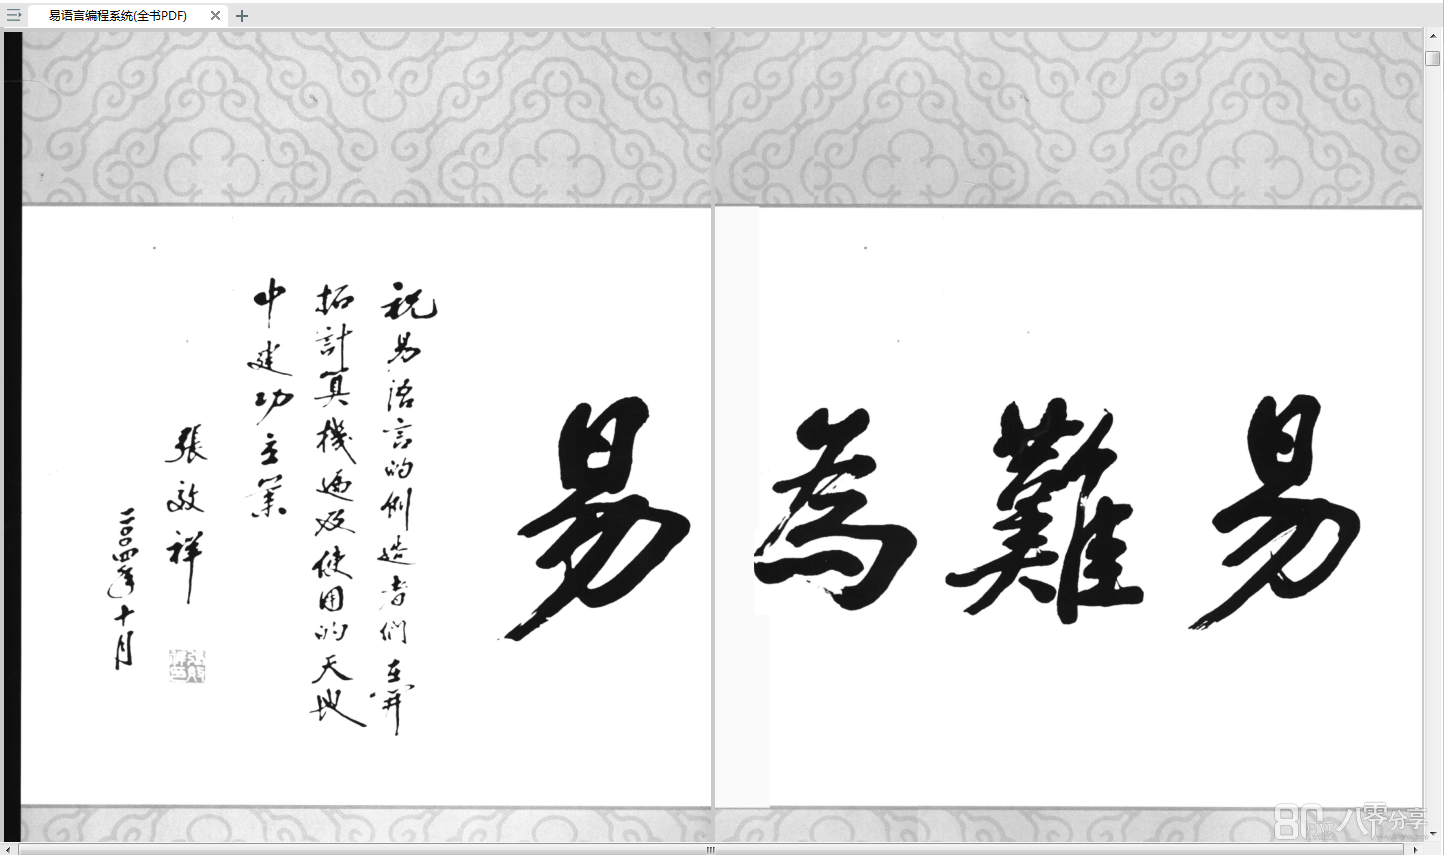 易语言编程系统(全书PDF)
易難為易
祝易語言的創造者們在開
拓計算機遍及使用的天地
中建功立業
張效祥
二〇〇四年十月
80
八零分享